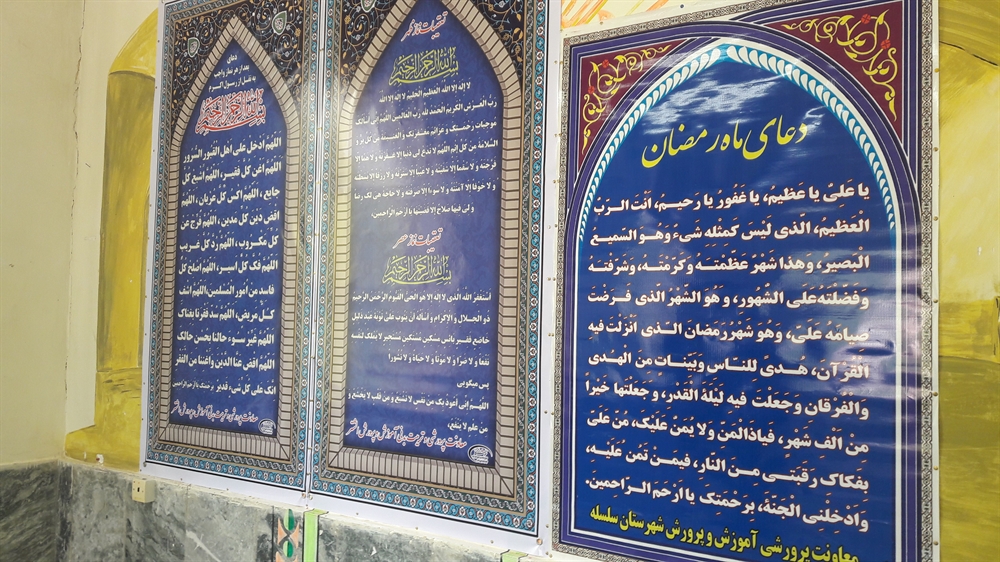 دعای ماه رمضان
یا عَلیُّ یا عَظیمُ، یا غَفُورُ یا رَحیمُ، اَنْتَ الرَّبُّ
الْعَظیمُ، الَّذی لَیْسَ کَمِثْلِهِ شَیءٌ وَهُوَ السَّمیعُ
الْبَصیرُ، وَهذا شَهْرٌ عَظَّمْتَهُ وَکَرَّمْتَهُ، وَشَرَّفْتَهُ
وَفَضَّلْتَهُ عَلَی الشُّهُورِ، وَهُوَ الشَّهْرُ الَّذی فَرَضْتَ
صِیامَهُ عَلَیَّ، وَهُوَ شَهْرُ رَمَضانَ الَّذی اَنْزَلْتَ فیهِ
الْقُرْآنَ، هُدیً لِلنّاسِ وَبَیِّناتٍ مِنَ الْهُدی
وَالْفُرْقانَ وَجَعَلْتَ فیهِ لَیْلَةَ الْقَدْرِ، وَجَعَلْتَها خَیْراً
مِنْ اَلْفِ شَهْرٍ، فَیاذَالْمَنِّ وَلا یُمَنُّ عَلَیْکَ، مُنَّ عَلَیَّ
بِفَکاکِ رَقَبَتی مِنَ النّارِ، فیمَنْ تَمُنُّ عَلَیْهِ،
وَاَدْخِلْنِی الْجَنَّةَ، بِرَحْمَتِکَ یا اَرْحَمَ الرّاحِمینَ.
معاونت پرورشی آموزش و پرورش شهرستان سلسله
تعقیبات نماز ظهر
بسم الله الرحمن الرحیم
لا اله الا الله العظیم الحلیم لا اله الا الله
رب العرش الکریم الحمد لله رب العالمین اللهم انی اسألک
موجبات رحمتک و عزائم مغفرتک و الغنیمة من کل بر و
السلامة من کل إثم اللهم لا تدع لی ذنبا إلا غفرته ولا هما إلا
فرجته و لا سقما إلا شفیته و لا عیبا إلا سترته ولا رزقا إلا بسطته
و لا خوفا إلا آمنته و لا سوءا إلا صرفته و لا حاجة هی لک رضا
و لی فیها صلاح إلا قضیتها یا ارحم الراحمین.
تعقیبات نماز عصر
بسم الله الرحمن الرحیم
أستغفر الله الذی لا إله إلا هو الحی القیوم الرحمن الرحیم
ذو الجلال و الإکرام و أسأله أن یتوب علی توبة عبد ذلیل
خاضع فقیر بائس مسکین مستکین مستجیر لا یملک لنفسه
نفعا و لا ضرا و لا موتا و لا حیاة و لا نشورا
پس میگویی
اللهم إنی أعوذ بک من نفس لا تشبع و من قلب لا یخشع و
من علم لا ینفع،
دعای
بعد از هر نماز واجب
به نقل از رسول اکرم
بسم الله الرحمن الرحیم
اللهم ادخل علی اهل القبور السرور
اللهم اغن کل فقیر، اللهم اشبع کل
جایع، اللهم اکس کل عریان، اللهم
اقض دین کل مدین، اللهم فرج عن
کل مکروب، اللهم رد کل غریب
اللهم فک کل اسیر، اللهم اصلح کل
فاسد من أمور المسلمین، اللهم اشف
کل مریض، اللهم سد فقرنا بغناک
اللهم غیر سوء حالنا بحسن حالک
اللهم اقض عنا الدین واغننا من الفقر
انک علی کل شیء قدیر